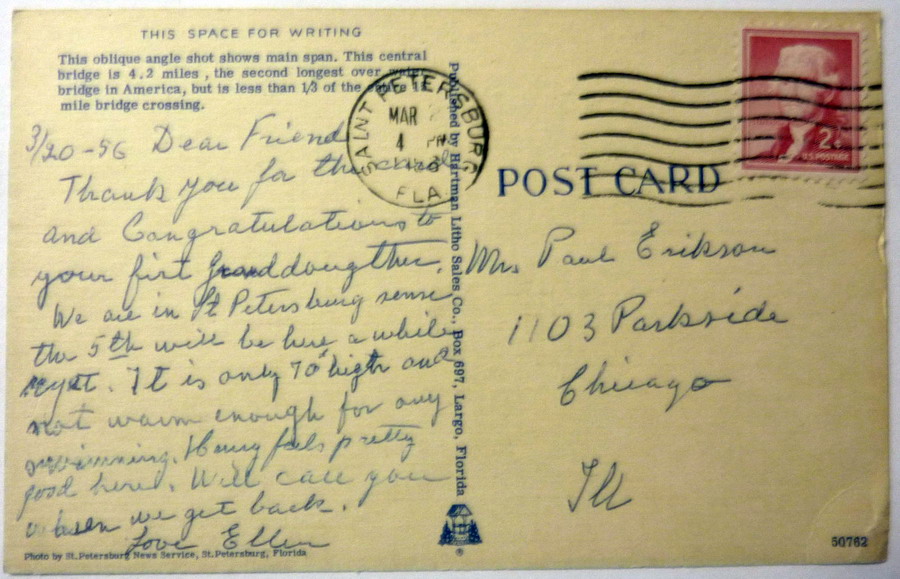 THIS SPACE FOR WRITING
This oblique angle shot shows main span. This central
bridge is 4.2 miles, the second longest over water
bridge in America, but is less than 1/3 of the entire 15
mile bridge crossing.
3/20-56 Dear Friend
Thank you for the card
and Congratulations to
your firt granddougther.
We are in St Petersburg sense
the 5th will be here a while
yet. It is only 70° higth and
not warm enough for any
swimming. Harry feels pretty
good here. Will call you
when we get back.
Love Ellen
Photo by St. Petersburg News Service, St. Petersburg, Florida
Published by Hartman Litho Sales Co., Box 697, Largo, Florida
®
SAINT PETERSBURG
MAR
4 PM
FLA.
2¢
U.S. POSTAGE
POST CARD
Mrs Paul Erikson
1103 Parkside
Chicago
Ill
50762